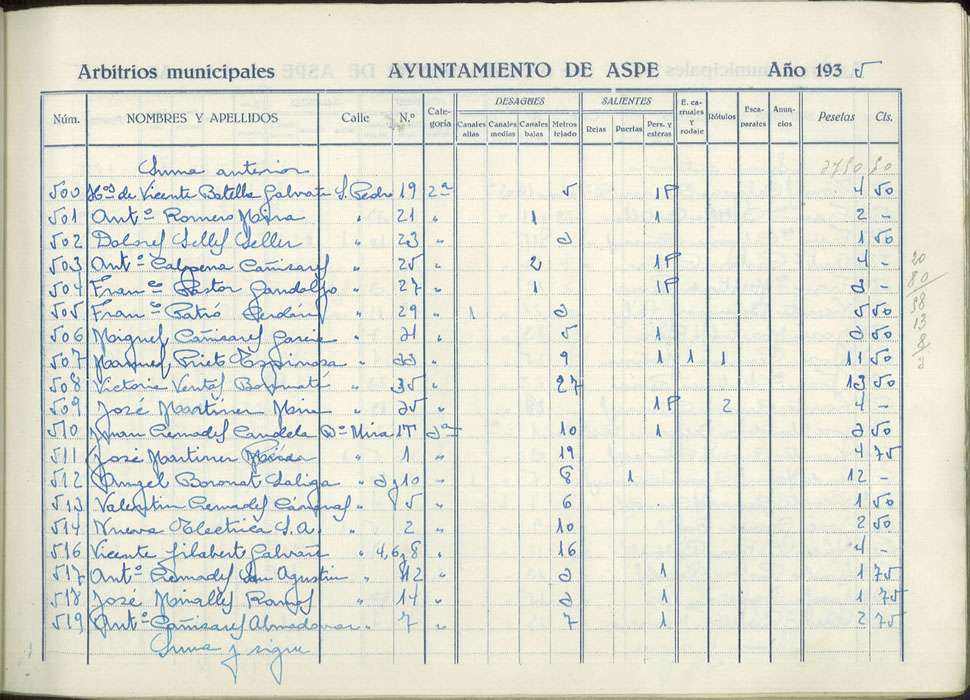 Arbitrios municipales AYUNTAMIENTO DE ASPE Año 1935
Núm. NOMBRES Y APELLIDOS Calle N.º Categoría DESAGUES SALIENTES E. carruajes y rodaje Rótulos Escaparates Anuncios Pesetas Cts.
Canales altas Canales medias Canales bajas Metros tejado Rejas Puertas Pers. y esteras
Suma anterior 2790 50
500 H.os de Vicente Botella Galvañ S. Pedro 19 2ª 5 1P 4 50
501 Antº Romero Mira " 21 " 1 1 2 -
502 Dolores Selles Seller " 23 " 2 1 50
503 Antº Calpena Cañizares " 25 " 2 1P 4 -
504 Franco Pastor Gandolfo " 27 " 1 1P 3 -
505 Franco 29 " 1 2 5 50
506 Miguel Cañizares Garcia " 31 " 5 1 2 50
507 Manuel Prieto Espinosa " 33 " 9 1 1 1 11 50
508 Victoria 35 " 27 13 50
509 José Martinez Mira " 25 " 1P 2 4 -
510 Juan Cremades Candela Dº Mira 17 3ª 10 1 3 50
511 José Martinez " 1 " 19 4 75
512 Angel Boronat " 3 y 10 " 8 1 12 -
513 Valentin Cremades Cánovas " 5 " 6 1 50
514 Nueva Electrica S.A. " 2 " 10 2 50
516 Vicente Gilabert Galvañ " 4, 6 y 8 " 16 4 -
517 Antº Cremades San Agustin " 12 " 2 1 1 75
518 José Miralles Ramos " 14 " 2 1 1 75
519 Antº Cañizares Almodovar " 7 " 7 1 2 75
Suma y sigue
20
80
58
13
8